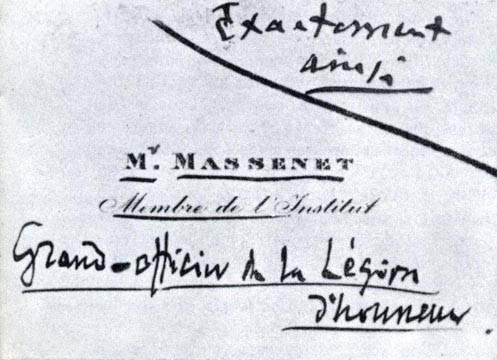 Exactement
ainsi
Mr. MASSENET
Membre de l'Institut
Grand-officier de la Légion
d'honneur.